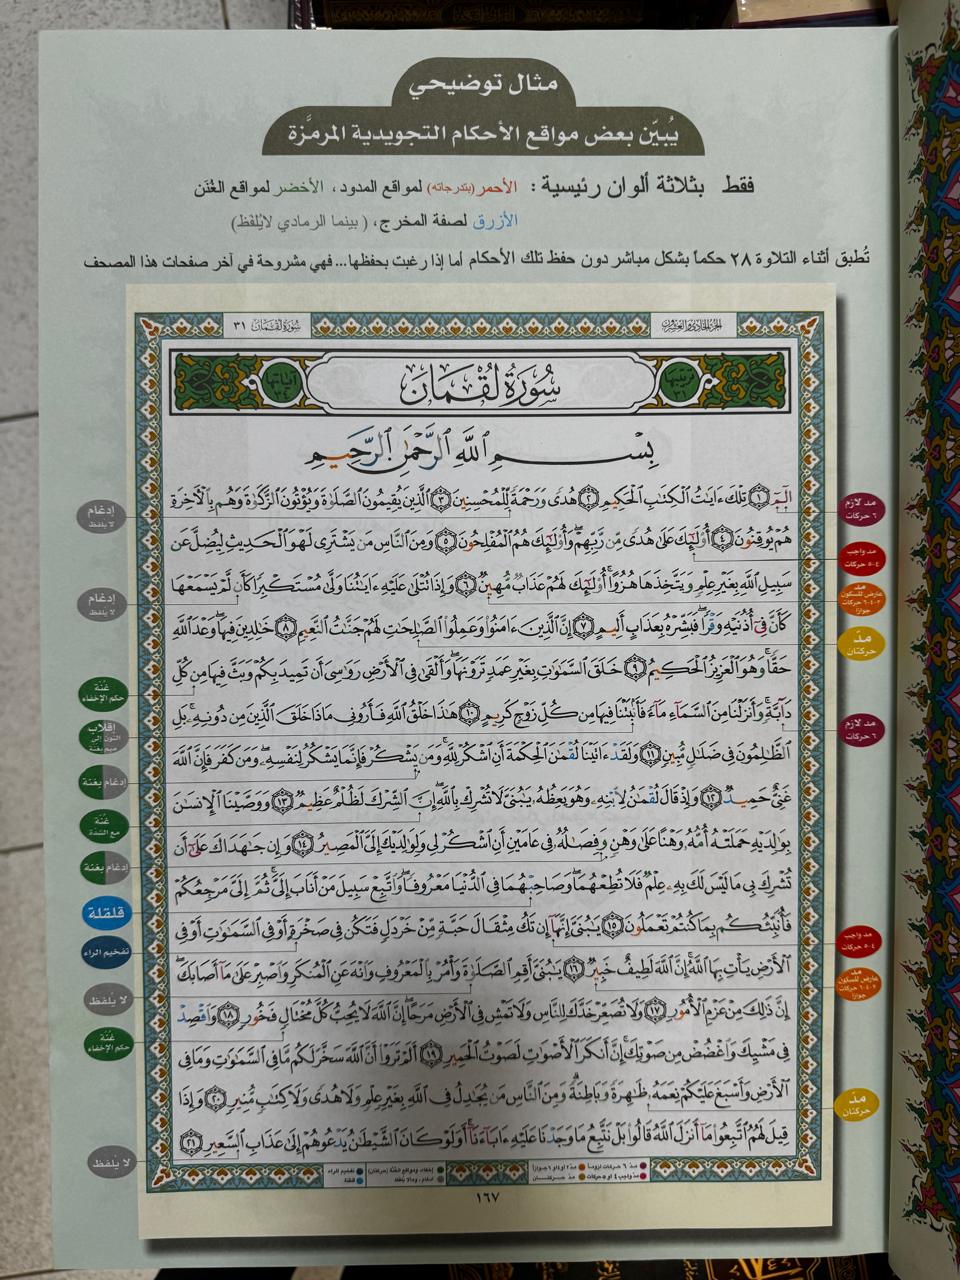 مثال توضيحي
يُبيّن بعض مواقع الأحكام التجويدية المرمَّزة
فقط بثلاثة ألوان رئيسية : الأحمر (بتدرجاته) لمواقع المدود، الأخضر لمواقع الغُنَن
الأزرق لصفة المخرج، ( بينما الرمادي لايُلفَظ)
تُطبق أثناء التلاوة ٢٨ حكماً بشكل مباشر دون حفظ تلك الأحكام أما إذا رغبت بحفظها... فهي مشروحة في آخر صفحات هذا المصحف
الجزء الحادي والعشرون
سُورَةُ لُقْمَان ٣١
ترتيبها ٣١
سُورَةُ لُقْمَان
آياتها ٣٤
بِسْمِ ٱللَّهِ ٱلرَّحْمَٰنِ ٱلرَّحِيمِ
الٓمٓ ١ تِلْكَ ءَايَٰتُ ٱلْكِتَٰبِ ٱلْحَكِيمِ ٢ هُدًى وَرَحْمَةً لِّلْمُحْسِنِينَ ٣ ٱلَّذِينَ يُقِيمُونَ ٱلصَّلَوٰةَ وَيُؤْتُونَ ٱلزَّكَوٰةَ وَهُم بِٱلْأَخِرَةِ
هُمْ يُوقِنُونَ ٤ أُو۟لَٰٓئِكَ عَلَىٰ هُدًى مِّن رَّبِّهِمْ ۖ وَأُو۟لَٰٓئِكَ هُمُ ٱلْمُفْلِحُونَ ٥ وَمِنَ ٱلنَّاسِ مَن يَشْتَرِى لَهْوَ ٱلْحَدِيثِ لِيُضِلَّ عَن
سَبِيلِ ٱللَّهِ بِغَيْرِ عِلْمٍ وَيَتَّخِذَهَا هُزُوًا ۚ أُو۟لَٰٓئِكَ لَهُمْ عَذَابٌ مُّهِينٌ ٦ وَإِذَا تُتْلَىٰ عَلَيْهِ ءَايَٰتُنَا وَلَّىٰ مُسْتَكْبِرًا كَأَن لَّمْ يَسْمَعْهَا
كَأَنَّ فِىٓ أُذُنَيْهِ وَقْرًا ۖ فَبَشِّرْهُ بِعَذَابٍ أَلِيمٍ ٧ إِنَّ ٱلَّذِينَ ءَامَنُوا۟ وَعَمِلُوا۟ ٱلصَّٰلِحَٰتِ لَهُمْ جَنَّٰتُ ٱلنَّعِيمِ ٨ خَٰلِدِينَ فِيهَا ۖ وَعْدَ ٱللَّهِ
حَقًّا ۚ وَهُوَ ٱلْعَزِيزُ ٱلْحَكِيمُ ٩ خَلَقَ ٱلسَّمَٰوَٰتِ بِغَيْرِ عَمَدٍ تَرَوْنَهَا ۖ وَأَلْقَىٰ فِى ٱلْأَرْضِ رَوَٰسِىَ أَن تَمِيدَ بِكُمْ وَبَثَّ فِيهَا مِن كُلِّ
دَآبَّةٍ ۚ وَأَنزَلْنَا مِنَ ٱلسَّمَآءِ مَآءً فَأَنۢبَتْنَا فِيهَا مِن كُلِّ زَوْجٍ كَرِيمٍ ١٠ هَٰذَا خَلْقُ ٱللَّهِ فَأَرُونِى مَاذَا خَلَقَ ٱلَّذِينَ مِن دُونِهِۦ ۚ بَلِ
ٱلظَّٰلِمُونَ فِى ضَلَٰلٍ مُّبِينٍ ١١ وَلَقَدْ ءَاتَيْنَا لُقْمَٰنَ ٱلْحِكْمَةَ أَنِ ٱشْكُرْ لِلَّهِ ۚ وَمَن يَشْكُرْ فَإِنَّمَا يَشْكُرُ لِنَفْسِهِۦ ۖ وَمَن كَفَرَ فَإِنَّ ٱللَّهَ
غَنِىٌّ حَمِيدٌ ١٢ وَإِذْ قَالَ لُقْمَٰنُ لِٱبْنِهِۦ وَهُوَ يَعِظُهُۥ يَٰبُنَىَّ لَا تُشْرِكْ بِٱللَّهِ ۖ إِنَّ ٱلشِّرْكَ لَظُلْمٌ عَظِيمٌ ١٣ وَوَصَّيْنَا ٱلْإِنسَٰنَ
بِوَٰلِدَيْهِ حَمَلَتْهُ أُمُّهُۥ وَهْنًا عَلَىٰ وَهْنٍ وَفِصَٰلُهُۥ فِى عَامَيْنِ أَنِ ٱشْكُرْ لِى وَلِوَٰلِدَيْكَ إِلَىَّ ٱلْمَصِيرُ ١٤ وَإِن جَٰهَدَاكَ عَلَىٰٓ أَن
تُشْرِكَ بِى مَا لَيْسَ لَكَ بِهِۦ عِلْمٌ فَلَا تُطِعْهُمَا ۖ وَصَاحِبْهُمَا فِى ٱلدُّنْيَا مَعْرُوفًا ۖ وَٱتَّبِعْ سَبِيلَ مَنْ أَنَابَ إِلَىَّ ۚ ثُمَّ إِلَىَّ مَرْجِعُكُمْ
فَأُنَبِّئُكُم بِمَا كُنتُمْ تَعْمَلُونَ ١٥ يَٰبُنَىَّ إِنَّهَآ إِن تَكُ مِثْقَالَ حَبَّةٍ مِّنْ خَرْدَلٍ فَتَكُن فِى صَخْرَةٍ أَوْ فِى ٱلسَّمَٰوَٰتِ أَوْ فِى
ٱلْأَرْضِ يَأْتِ بِهَا ٱللَّهُ ۚ إِنَّ ٱللَّهَ لَطِيفٌ خَبِيرٌ ١٦ يَٰبُنَىَّ أَقِمِ ٱلصَّلَوٰةَ وَأْمُرْ بِٱلْمَعْرُوفِ وَٱنْهَ عَنِ ٱلْمُنكَرِ وَٱصْبِرْ عَلَىٰ مَآ أَصَابَكَ ۖ
إِنَّ ذَٰلِكَ مِنْ عَزْمِ ٱلْأُمُورِ ١٧ وَلَا تُصَعِّرْ خَدَّكَ لِلنَّاسِ وَلَا تَمْشِ فِى ٱلْأَرْضِ مَرَحًا ۖ إِنَّ ٱللَّهَ لَا يُحِبُّ كُلَّ مُخْتَالٍ فَخُورٍ ١٨ وَٱقْصِدْ
فِى مَشْيِكَ وَٱغْضُضْ مِن صَوْتِكَ ۚ إِنَّ أَنكَرَ ٱلْأَصْوَٰتِ لَصَوْتُ ٱلْحَمِيرِ ١٩ أَلَمْ تَرَوْا۟ أَنَّ ٱللَّهَ سَخَّرَ لَكُم مَّا فِى ٱلسَّمَٰوَٰتِ وَمَا فِى
ٱلْأَرْضِ وَأَسْبَغَ عَلَيْكُمْ نِعَمَهُۥ ظَٰهِرَةً وَبَاطِنَةً ۗ وَمِنَ ٱلنَّاسِ مَن يُجَٰدِلُ فِى ٱللَّهِ بِغَيْرِ عِلْمٍ وَلَا هُدًى وَلَا كِتَٰبٍ مُّنِيرٍ ٢٠ وَإِذَا
قِيلَ لَهُمُ ٱتَّبِعُوا۟ مَآ أَنزَلَ ٱللَّهُ قَالُوا۟ بَلْ نَتَّبِعُ مَا وَجَدْنَا عَلَيْهِ ءَابَآءَنَآ ۚ أَوَلَوْ كَانَ ٱلشَّيْطَٰنُ يَدْعُوهُمْ إِلَىٰ عَذَابِ ٱلسَّعِيرِ ٢١
مد لازم
٦ حركات
مد واجب
٤-٥ حركات
مد
عارض للسكون
٢-٤-٦ حركات
جوازا
مدّ
حركتان
مد لازم
٦ حركات
مد واجب
٤-٥ حركات
مد
عارض للسكون
٢-٤-٦ حركات
جوازا
مدّ
حركتان
إدغام
لا يلفظ
إدغام
لا يلفظ
غنّة
حكم الإخفاء
إقلاب
النون إلى
ميم بغنة
إدغام بغنة
غنّة
مع الشدّة
إدغام بغنة
قلقلة
تفخيم الراء
لا يُلفظ
غنّة
حكم الإخفاء
لا يُلفظ
مدّ ٦ حركات لزوماً مدّ ٢ او ٤ او ٦ جوازاً إخفاء، ومواقع الغُنّة (حركتان) تفخيم الراء
مدّ واجب ٤ او ٥ حركات مدّ حركتان إدغام، وما لا يُلفظ قلقلة
١٦٧